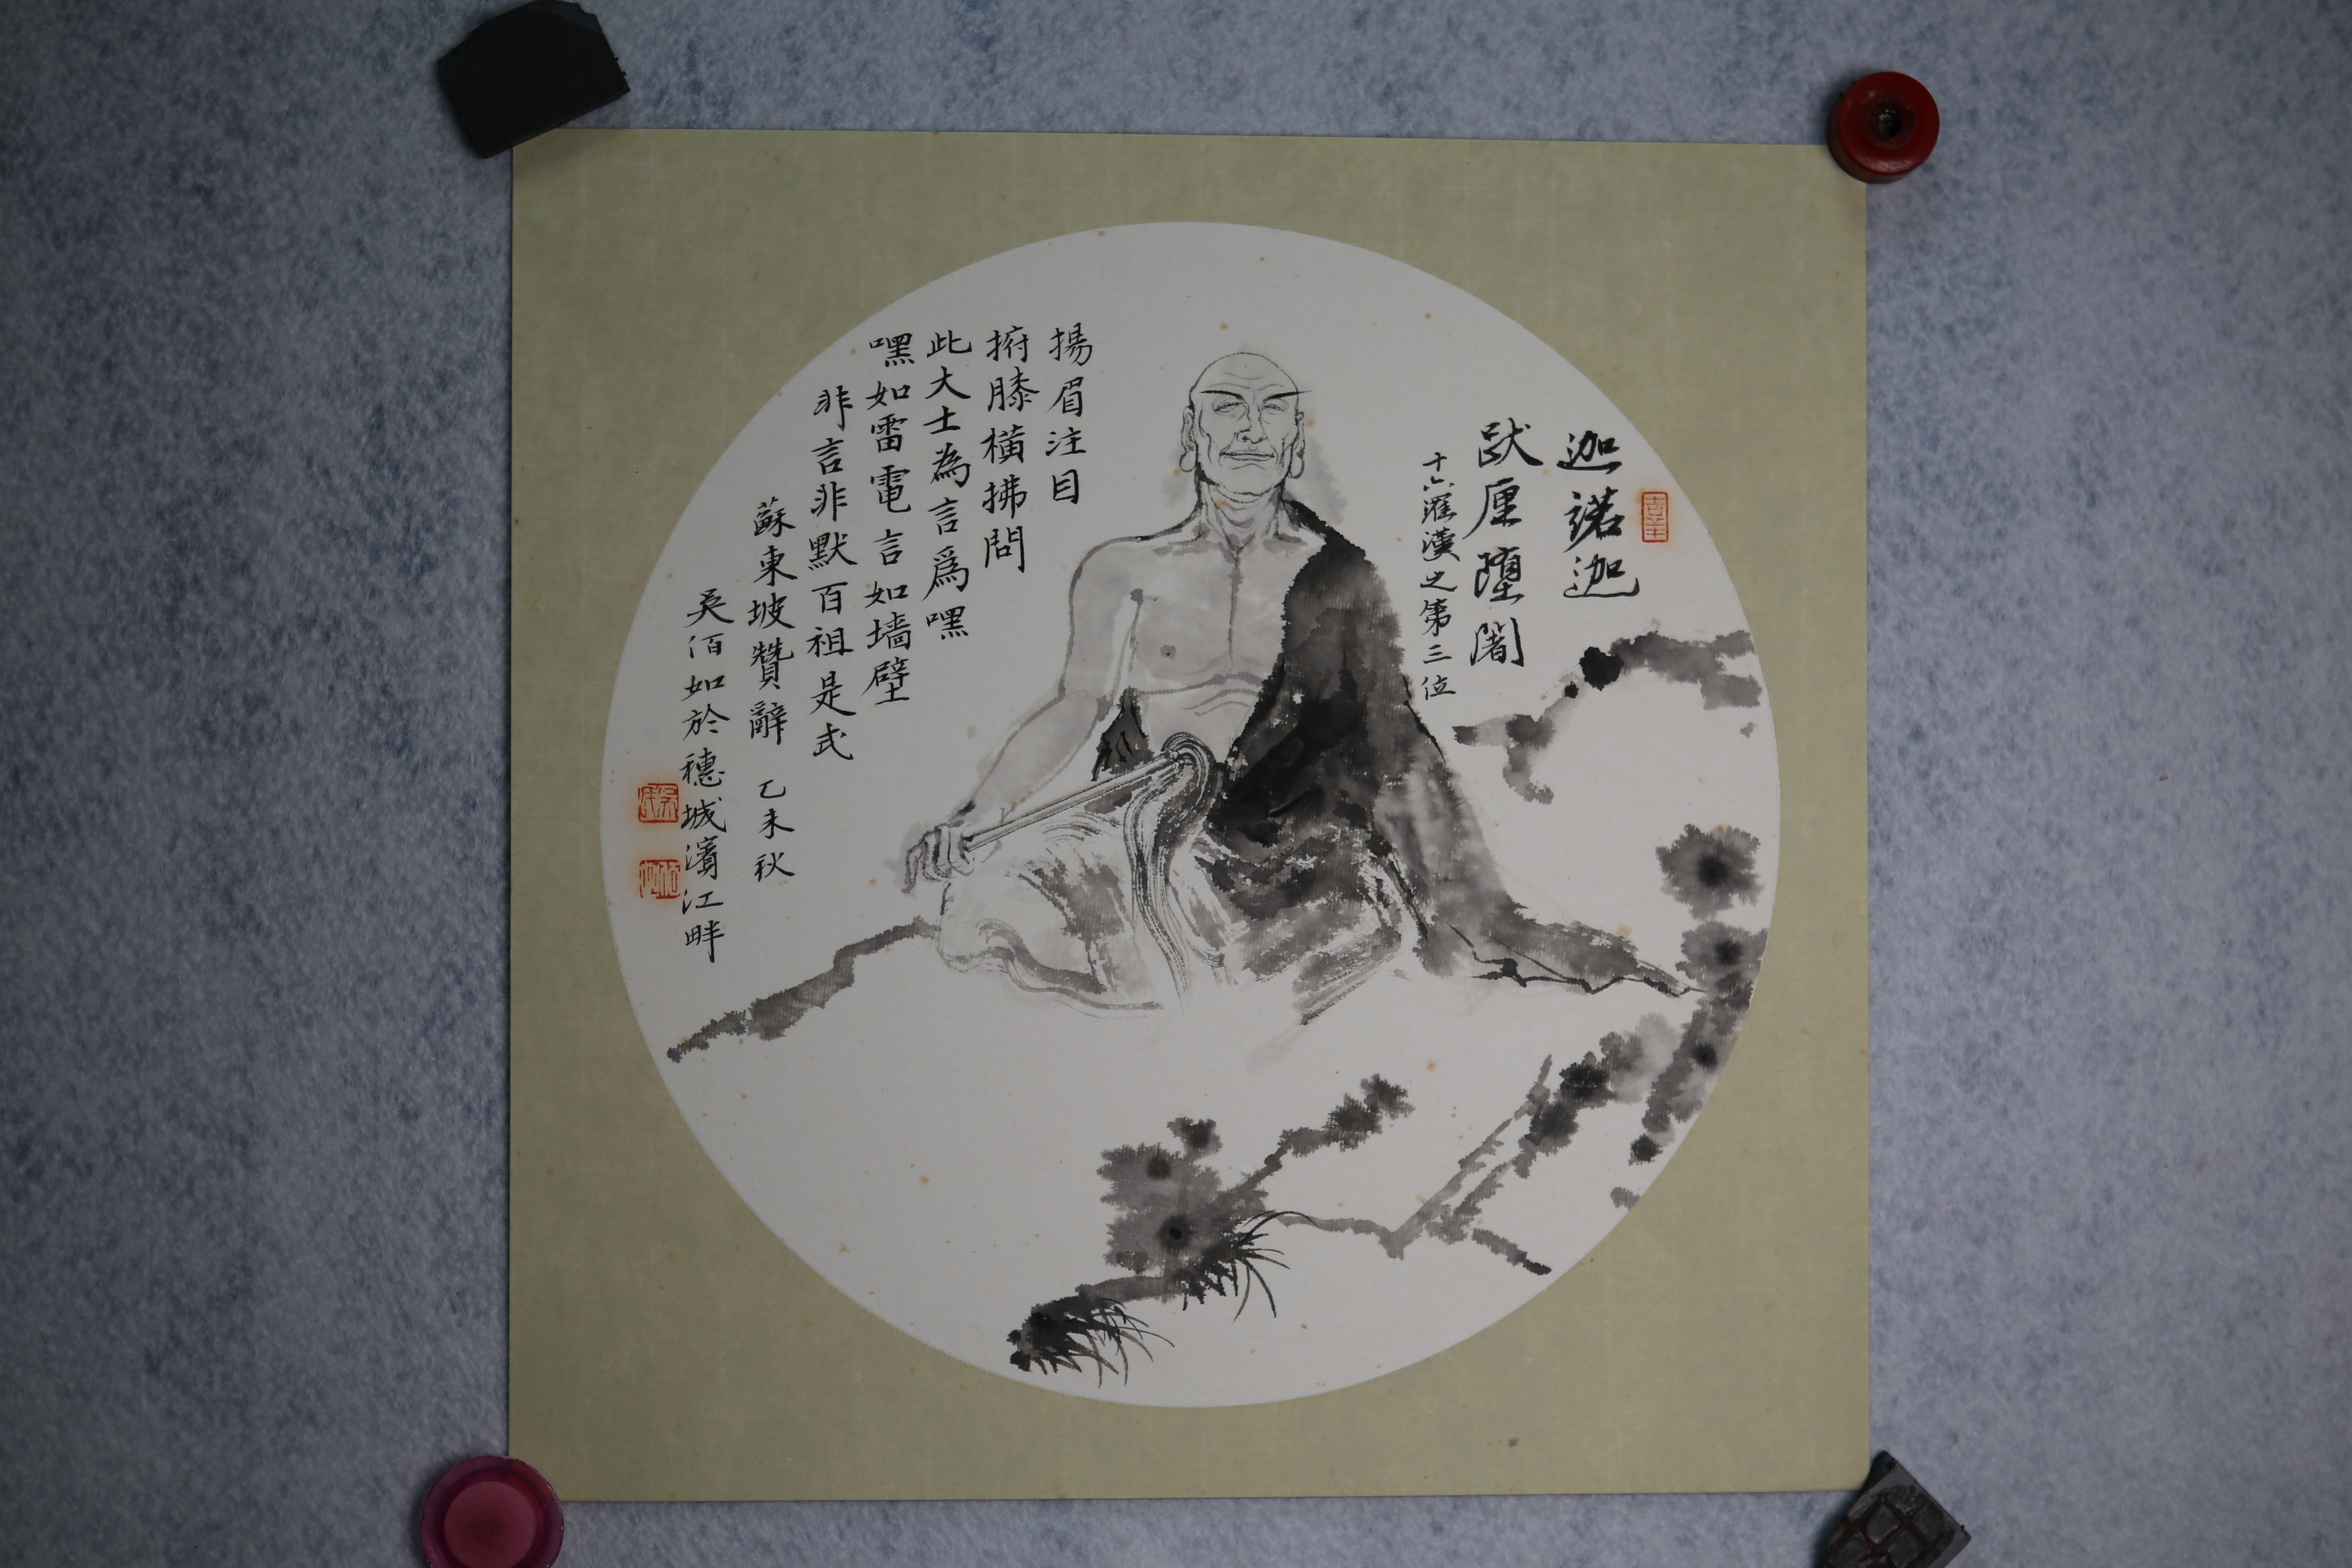 迦諾迦
跋厘墮闍
十六羅漢之第三位
揚眉注目
拊膝橫拂問
此大士為言爲嘿
嘿如雷電言如墙壁
非言非默百祖是式
蘇東坡贊辭 乙未秋
吳佰如於穗城濱江畔